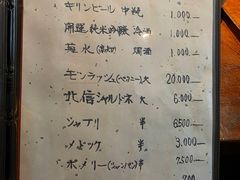 キリンビール 中瓶 1,000.—
開運 純米吟醸 冷酒 1,000.—
菊水 燗酒 1,000.—
モンラッシェ 大 20,000.—
北信シャルドネ 大 6,000.—
シャブリ 半 6500.—
メドック 半 3,000.—
ポメリー(シャンペン) 半 7500.—
700